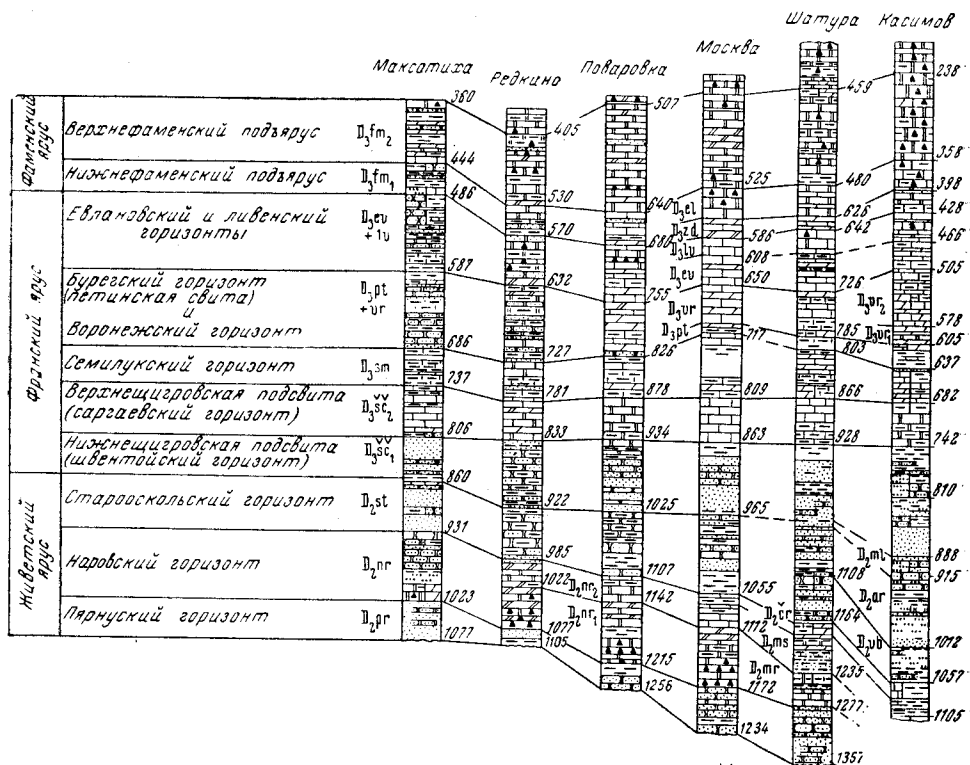 Максатиха
Редкино
Поваровка
Москва
Шатура
Касимов
Фаменский ярус
Верхнефаменский подъярус D₃fm₂
Нижнефаменский подъярус D₃fm₁
Франский ярус
Евлановский и ливенский горизонты D₃ev + lv
Бурегский горизонт
(петинская свита) D₃pt
и + vr
Воронежский горизонт
Семилукский горизонт D₃sm
Верхнещигровская подсвита
(саргаевский горизонт) D₃šč₂
Нижнещигровская подсвита
(швентойский горизонт) D₃šč₁
Живетский ярус
Старооскольский горизонт D₂st
Наровский горизонт D₂nr
Пярнуский горизонт D₂pr
360
444
486
587
686
737
806
860
931
1023
1077
405
530
570
632
727
781
833
922
985
1022
1077
1105
D₂nr₂
D₂nr₁
507
640
680
755
826
878
934
1025
1107
1142
1215
1256
D₃el
D₃zd
D₃lv
D₃ev
D₃vr
D₃pt
525
586
608
650
717
809
863
965
1055
1112
1172
1234
D₂čr
D₂ms
D₂mr
459
480
626
642
726
785
803
866
928
1108
1164
1235
1277
1357
D₃vr₂
D₃vr₁
D₂ml
D₂ar
D₂vb
238
358
398
428
466
505
578
605
637
682
742
810
888
915
1012
1057
1105